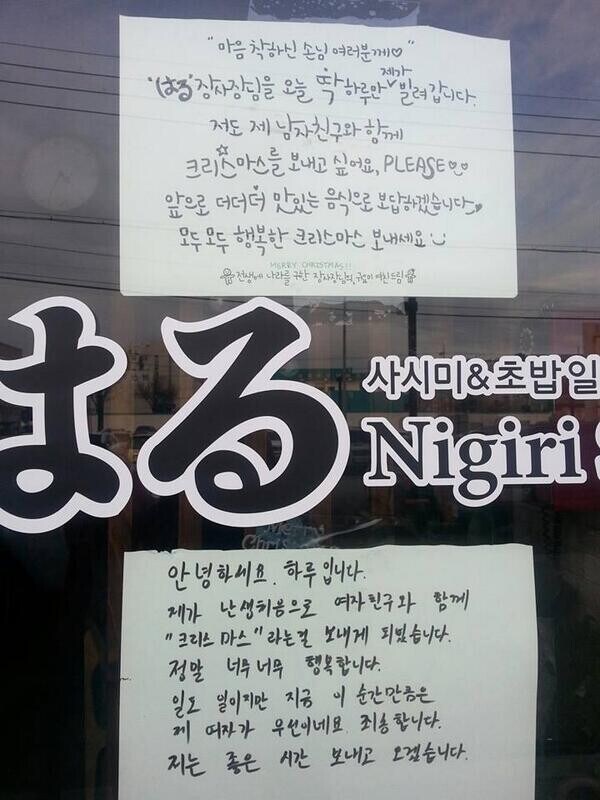 "마음 착하신 손님 여러분께♡"
'はる' 장사장님을 오늘 딱 하루만 제가 빌려갑니다.
저도 제 남자친구와 함께
크리스마스를 보내고 싶어요, PLEASE
앞으로 더더더 맛있는 음식으로 보답하겠습니다
모두모두 행복한 크리스마스 보내세요
MERRY CHRISTMAS!!
전생에 나라를 구한 장사장님의 여친드림
はる
사시미&초밥 일
Nigiri
Merry
Chris
안녕하세요. 하루입니다.
제가 난생처음으로 여자친구와 함께
"크리스마스"라는걸 보내게 되빘습니다.
정말 너무너무 행복합니다.
일도 일이지만 지금 이 순간만큼은
제 여자가 우선이네요. 죄송합니다.
저는 좋은 시간 보내고 오겠습니다.